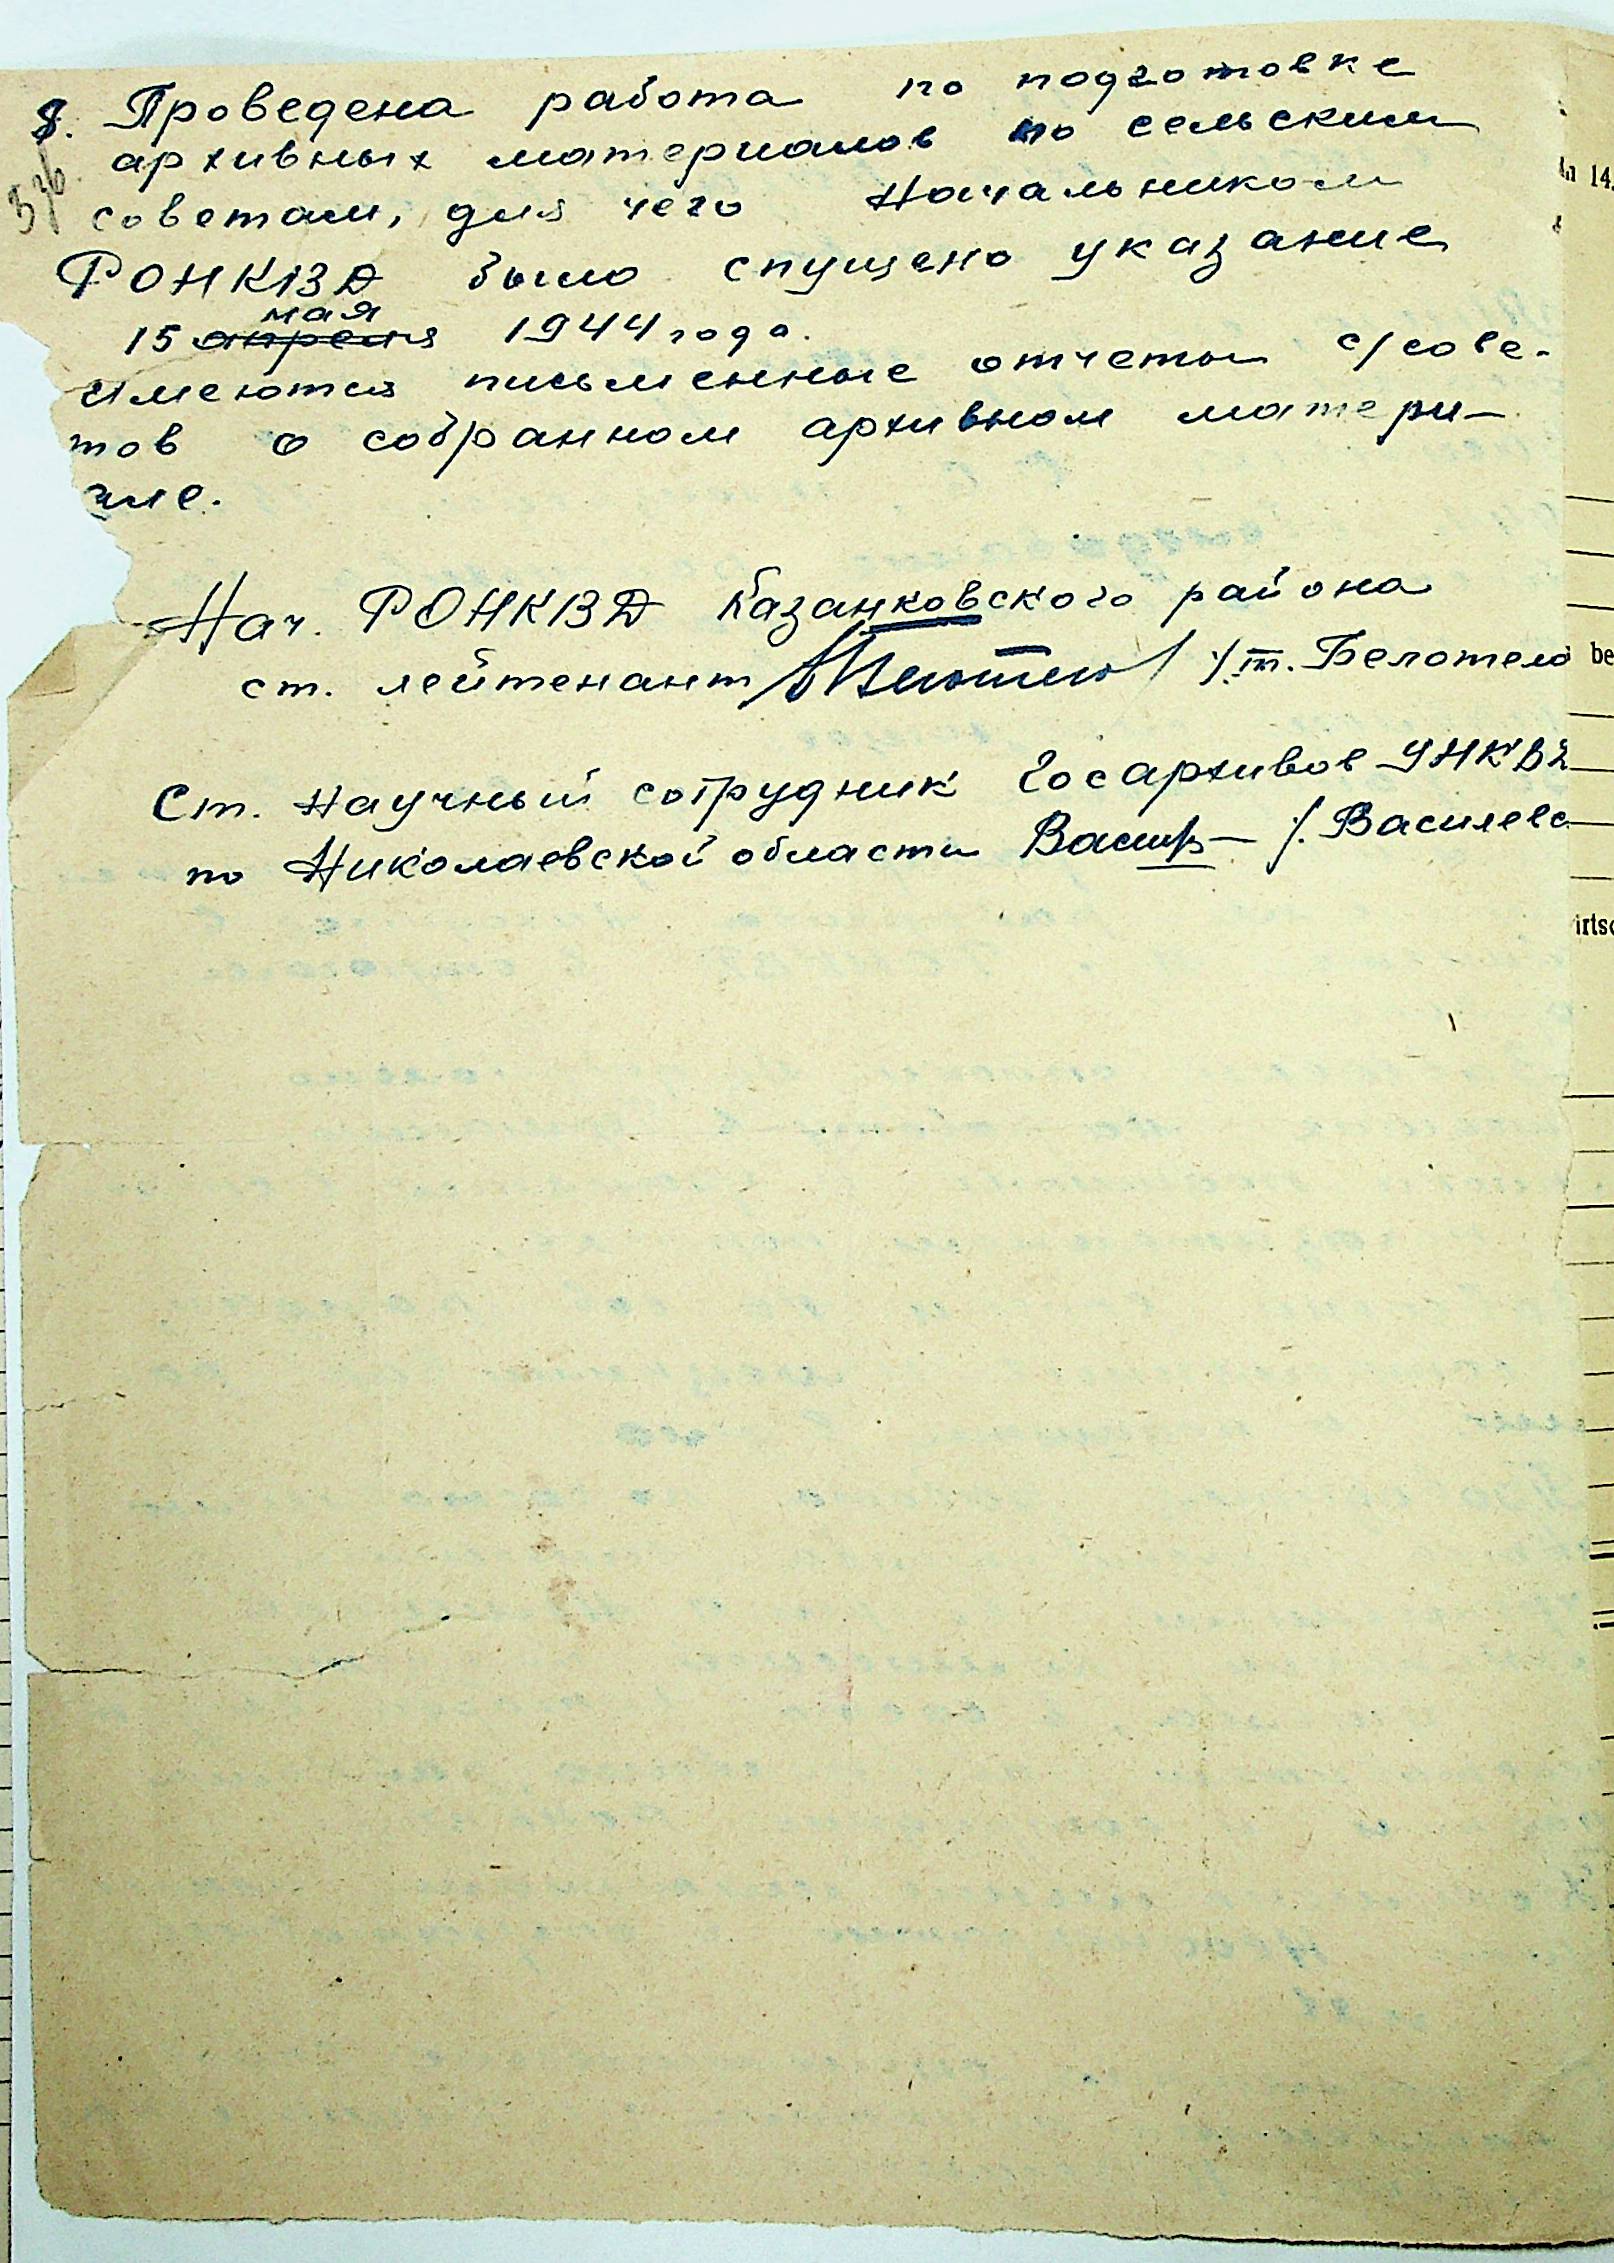 8. Проведена работа по подготовке
архивных материалов по сельским
советам, для чего Начальником
РОНКВД было спущено указание
мая
15 апреля 1944 года.
Имеются письменные отчеты с/сове-
тов о собранном архивном матери-
але.
Нач. РОНКВД Казанковского района
ст. лейтенант /т. Белотело
Ст. Научный сотрудник Госархивов УНКВД
по Николаевской области /. Василевс
14.
be
irtsc